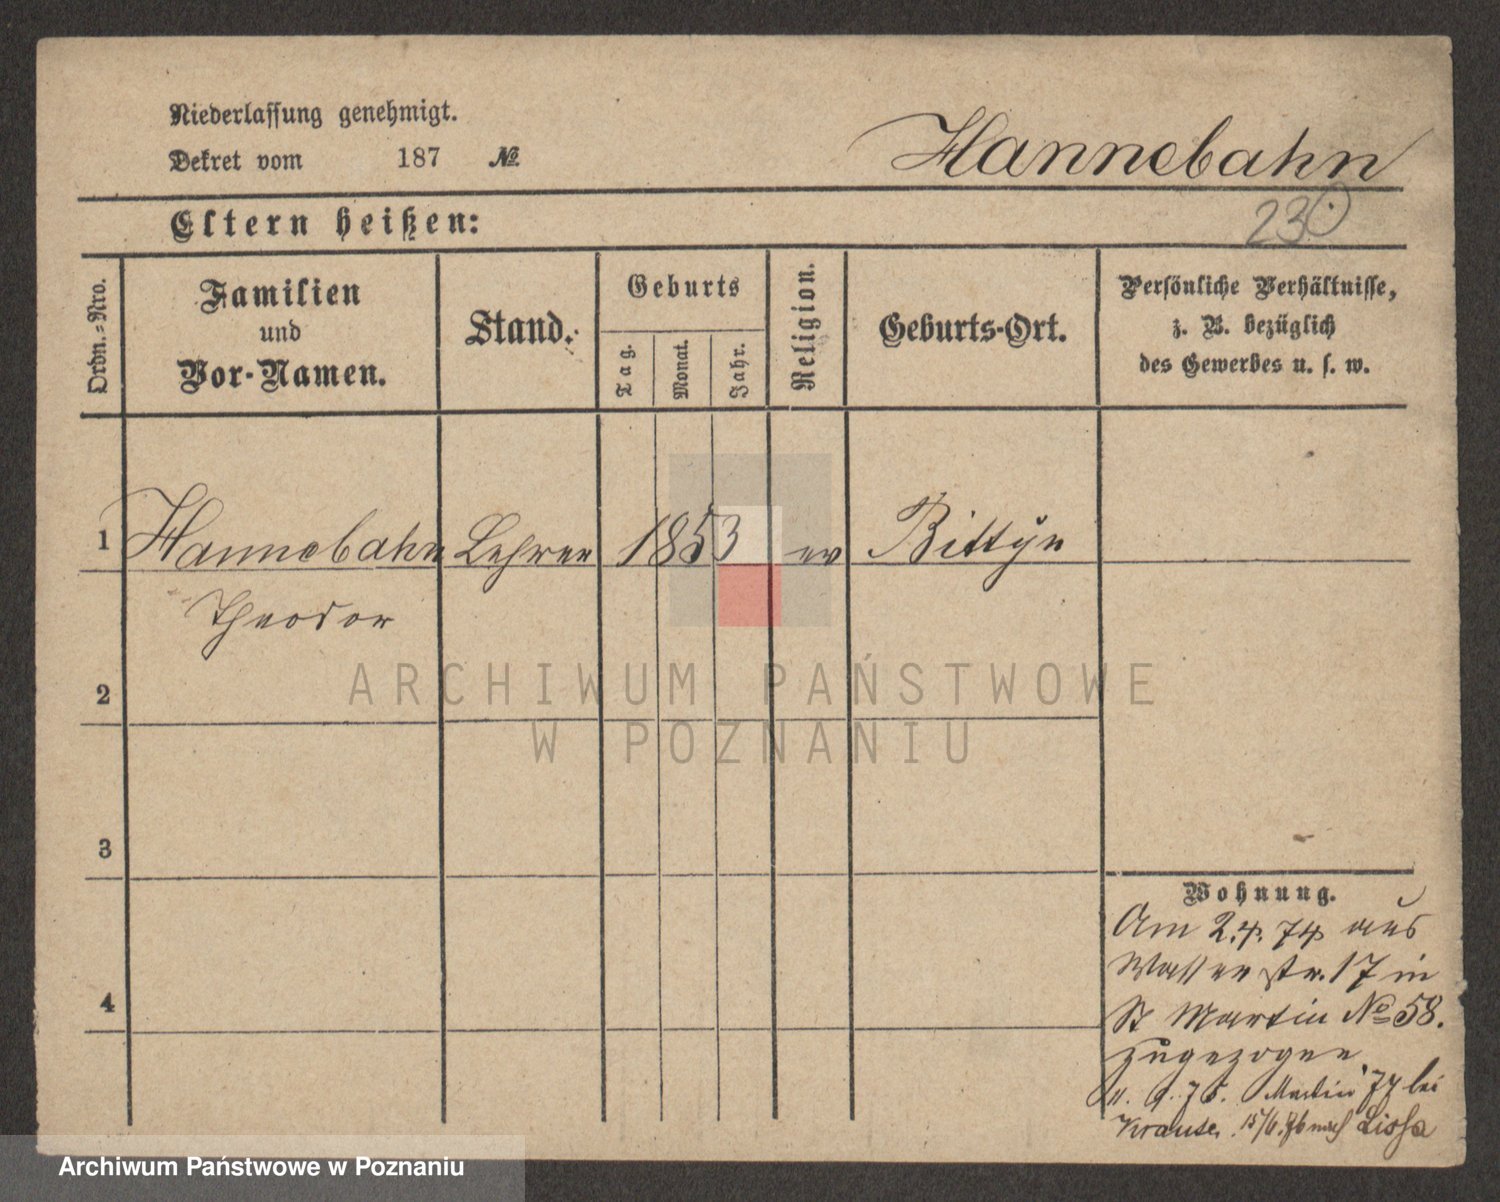 Niederlassung genehmigt.
Dekret vom 187 №
Hannebahn
Eltern heißen:
230
Ordn.=Nro.
Familien
und
Vor-Namen.
Stand.
Geburts
Tag.
Monat.
Jahr.
Religion.
Geburts-Ort.
Persönliche Verhältnisse,
z. B. bezüglich
des Gewerbes u. s. w.
1 Hannebahn Lehrer 1853 ev Bittÿn
Theodor
2
ARCHIWUM PAŃSTWOWE
W POZNANIU
3
Wohnung.
Am 2.4.74 aus
Wasserstr. 17 in
St Martin № 58.
zugezogen
11. 9. 75. Martin 74 bei
Krause. 15/6.76 nach Lissa
4
Archiwum Państwowe w Poznaniu